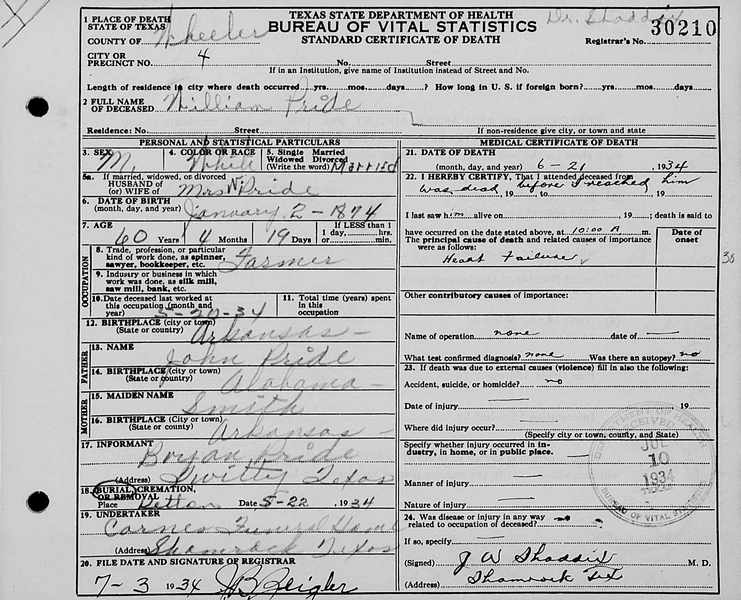 TEXAS STATE DEPARTMENT OF HEALTH
BUREAU OF VITAL STATISTICS
STANDARD CERTIFICATE OF DEATH
Dr. Shaddix
30210
Registrar's No.
1 PLACE OF DEATH
STATE OF TEXAS
COUNTY OF Wheeler
CITY OR
PRECINCT NO. 4 No. Street
If in an Institution, give name of Institution instead of Street and No.
Length of residence in city where death occurred yrs. mos. days? How long in U. S. if foreign born? yrs. mos. days
2 FULL NAME
OF DECEASED William Pride
Residence: No. Street If non-residence give city, or town and state
PERSONAL AND STATISTICAL PARTICULARS
3. SEX M. 4. COLOR OR RACE White 5. Single Married Widowed Divorced (Write the word) Married
5a. If married, widowed, or divorced
HUSBAND OF
(or) WIFE OF Mrs W Pride
6. DATE OF BIRTH
(month, day, and year) January 2 - 1874
7. AGE 60 Years 4 Months 19 Days If LESS than 1 day, hrs. or min.
OCCUPATION
8. Trade, profession, or particular
kind of work done, as spinner,
sawyer, bookkeeper, etc. Farmer
9. Industry or business in which
work was done, as silk mill,
saw mill, bank, etc.
10. Date deceased last worked at
this occupation (month and
year) 5-20-34
11. Total time (years)
spent in this
occupation
12. BIRTHPLACE (city or town)
(State or country) Arkansas -
FATHER
13. NAME John Pride
14. BIRTHPLACE (city or town)
(State or country) Alabama -
MOTHER
15. MAIDEN NAME Smith
16. BIRTHPLACE (City or town)
(State or country) Arkansas -
17. INFORMANT Bryan Pride
(Address) Twitty Texas
18. BURIAL, CREMATION,
OR REMOVAL
Place Date 5-22 , 1934
19. UNDERTAKER Funeral Home
(Address) Shamrock Texas
20. FILE DATE AND SIGNATURE OF REGISTRAR
7-3 1934
MEDICAL CERTIFICATE OF DEATH
21. DATE OF DEATH
(month, day, and year) 6-21 , 1934
22. I HEREBY CERTIFY, That I attended deceased from
was dead , 19 before I reached him , 19
I last saw him alive on , 19 ; death is said to
have occurred on the date stated above, at 10:00 A m.
The principal cause of death and related causes of importance
were as follows:
Date of
onset
Heart Failure
Other contributory causes of importance:
Name of operation none date of —
What test confirmed diagnosis? none Was there an autopsy? no
23. If death was due to external causes (violence) fill in also the following:
Accident, suicide, or homicide? no
Date of injury — 19
Where did injury occur? —
(Specify city or town, county, and State)
Specify whether injury occurred in in-
dustry, in home, or in public place. —
Manner of injury —
Nature of injury —
24. Was disease or injury in any way
related to occupation of deceased? no
If so, specify —
(Signed) J W Shaddix M. D.
(Address) Shamrock Tex
RECEIVED
JUL
10
1934
BUREAU OF VITAL STATISTICS